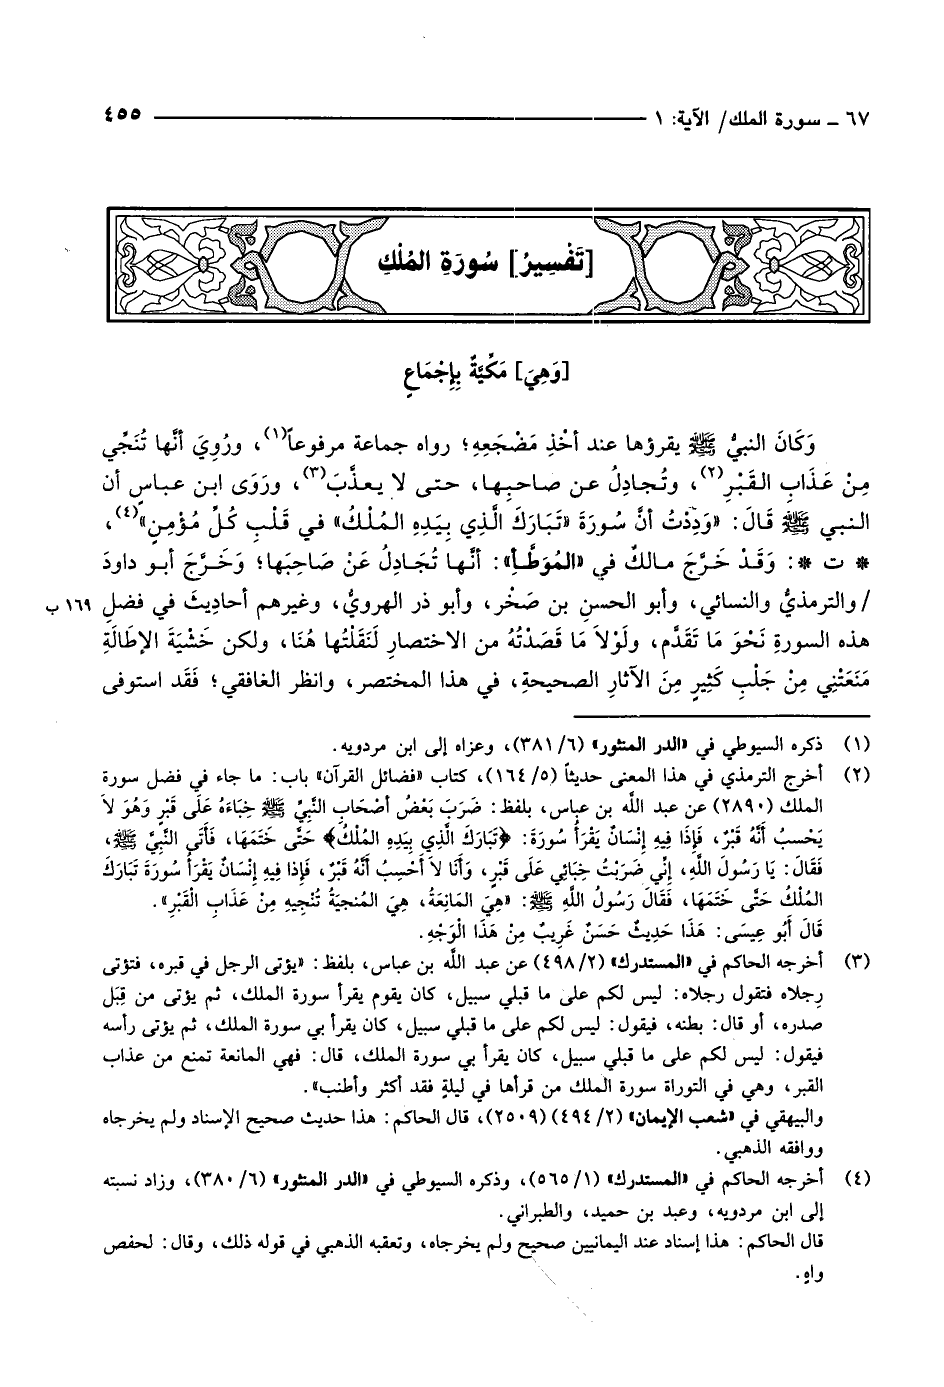 ٦٧ ـ سورة الملك/ الآية: ١ ٤٥٥
[تَفْسِيرُ] سُورَةِ المُلْكِ
[وَهِيَ] مَكِّيَّةٌ بِإجْمَاعٍ
وَكَانَ النبيُّ ﷺ يقرؤها عند أخْذِ مَضْجَعِهِ؛ رواه جماعة مرفوعاً(١)، ورُوِيَ أنَّها تُنَجِّي
مِنْ عَذَابِ القَبْرِ(٢)، وتُجادِلُ عن صاحبِها، حتى لا يعذَّبَ(٣)، ورَوَى ابن عباسٍ أن
النبي ﷺ قَالَ: «وَدِدْتُ أنَّ سُورَةَ «تَبَارَكَ الَّذِي بِيَدِهِ المُلْكُ» في قَلْبِ كُلِّ مُؤْمِنٍ»(٤)،
* ت *: وَقَدْ خَرَّجَ مالكٌ في «المُوَطَّإ»: أنَّها تُجَادِلُ عَنْ صَاحِبَها؛ وَخَرَّجَ أبو داودَ
/ والترمذيُّ والنسائي، وأبو الحسنِ بن صَخْر، وأبو ذر الهرويُّ، وغيرهم أحاديثَ في فضلِ ١٦٩ ب
هذه السورةِ نَحْوَ مَا تَقَدَّم، ولَوْلاَ مَا قَصَدْتُهُ من الاختصارِ لَنَقَلْتُها هُنَا، ولكن خَشْيَةَ الإطَالَةِ
مَنَعَتْنِي مِنْ جَلْبِ كَثِيرٍ مِنَ الآثارِ الصحيحةِ، في هذا المختصر، وانظر الغافقي؛ فَقَد استوفى
(١) ذكره السيوطي في «الدر المنثور» (٦/ ٣٨١)، وعزاه إلى ابن مردويه.
(٢) أخرج الترمذي في هذا المعنى حديثاً (٥/ ١٦٤)، كتاب «فضائل القرآن» باب: ما جاء في فضل سورة
الملك (٢٨٩٠) عن عبد الله بن عباس، بلفظ: ضَرَبَ بَعْضُ أصْحَابِ النَّبِيِّ ﷺ خِبَاءَهُ عَلَى قَبْرٍ وَهُوَ لاَ
يَحْسبُ أنَّهُ قَبْرٌ، فَإذَا فِيهِ إنْسَانٌ يَقْرَأُ سُورَةَ: ﴿تَبَارَكَ الَّذِي بِيَدِهِ المُلْكُ﴾ حَتَّى خَتَمَهَا، فَأَتَى النَّبِيَّ ﷺ،
فَقَالَ: يَا رَسُولَ اللَّهِ، إنِّي ضَرَبْتُ خِبَائِي عَلَى قَبْرٍ، وَأَنَا لاَ أَحْسِبُ أَنَّهُ قَبْرٌ، فَإذا فِيهِ إِنْسَانٌ يَقْرَأُ سُورَةَ تَبَارَكَ
المُلْكُ حَتَّى خَتَمَهَا، فَقَالَ رَسُولُ اللَّهِ ﷺ: «هِيَ المَانِعَةُ، هِيَ المُنجيَةُ تُنْجِيهِ مِنْ عَذَابِ القَبْرِ».
قَالَ أَبُو عِيسَى: هَذَا حَدِيثٌ حَسَنٌ غَرِيبٌ مِنْ هَذَا الْوَجْهِ.
(٣) أخرجه الحاكم في «المستدرك» (٢/ ٤٩٨) عن عبد الله بن عباس، بلفظ: «يؤتى الرجل في قبره، فتؤتى
رجلاه فتقول رجلاه: ليس لكم على ما قبلي سبيل، كان يقوم يقرأ سورة الملك، ثم يؤتى من قِبَل
صدره، أو قال: بطنه، فيقول: ليس لكم على ما قبلي سبيل، كان يقرأ بي سورة الملك، ثم يؤتى رأسه
فيقول: ليس لكم على ما قبلي سبيل، كان يقرأ بي سورة الملك، قال: فهي المانعة تمنع من عذاب
القبر، وهي في التوراة سورة الملك من قرأها في ليلةٍ فقد أكثر وأطنب».
والبيهقي في «شعب الإيمان» (٢/ ٤٩٤) (٢٥٠٩)، قال الحاكم: هذا حديث صحيح الإسناد ولم يخرجاه
ووافقه الذهبي.
(٤) أخرجه الحاكم في «المستدرك» (١/ ٥٦٥)، وذكره السيوطي في «الدر المنثور» (٦/ ٣٨٠)، وزاد نسبته
إلى ابن مردويه، وعبد بن حميد، والطبراني.
قال الحاكم: هذا إسناد عند اليمانيين صحيح ولم يخرجاه، وتعقبه الذهبي في قوله ذلك، وقال: لحفص
واهٍ.